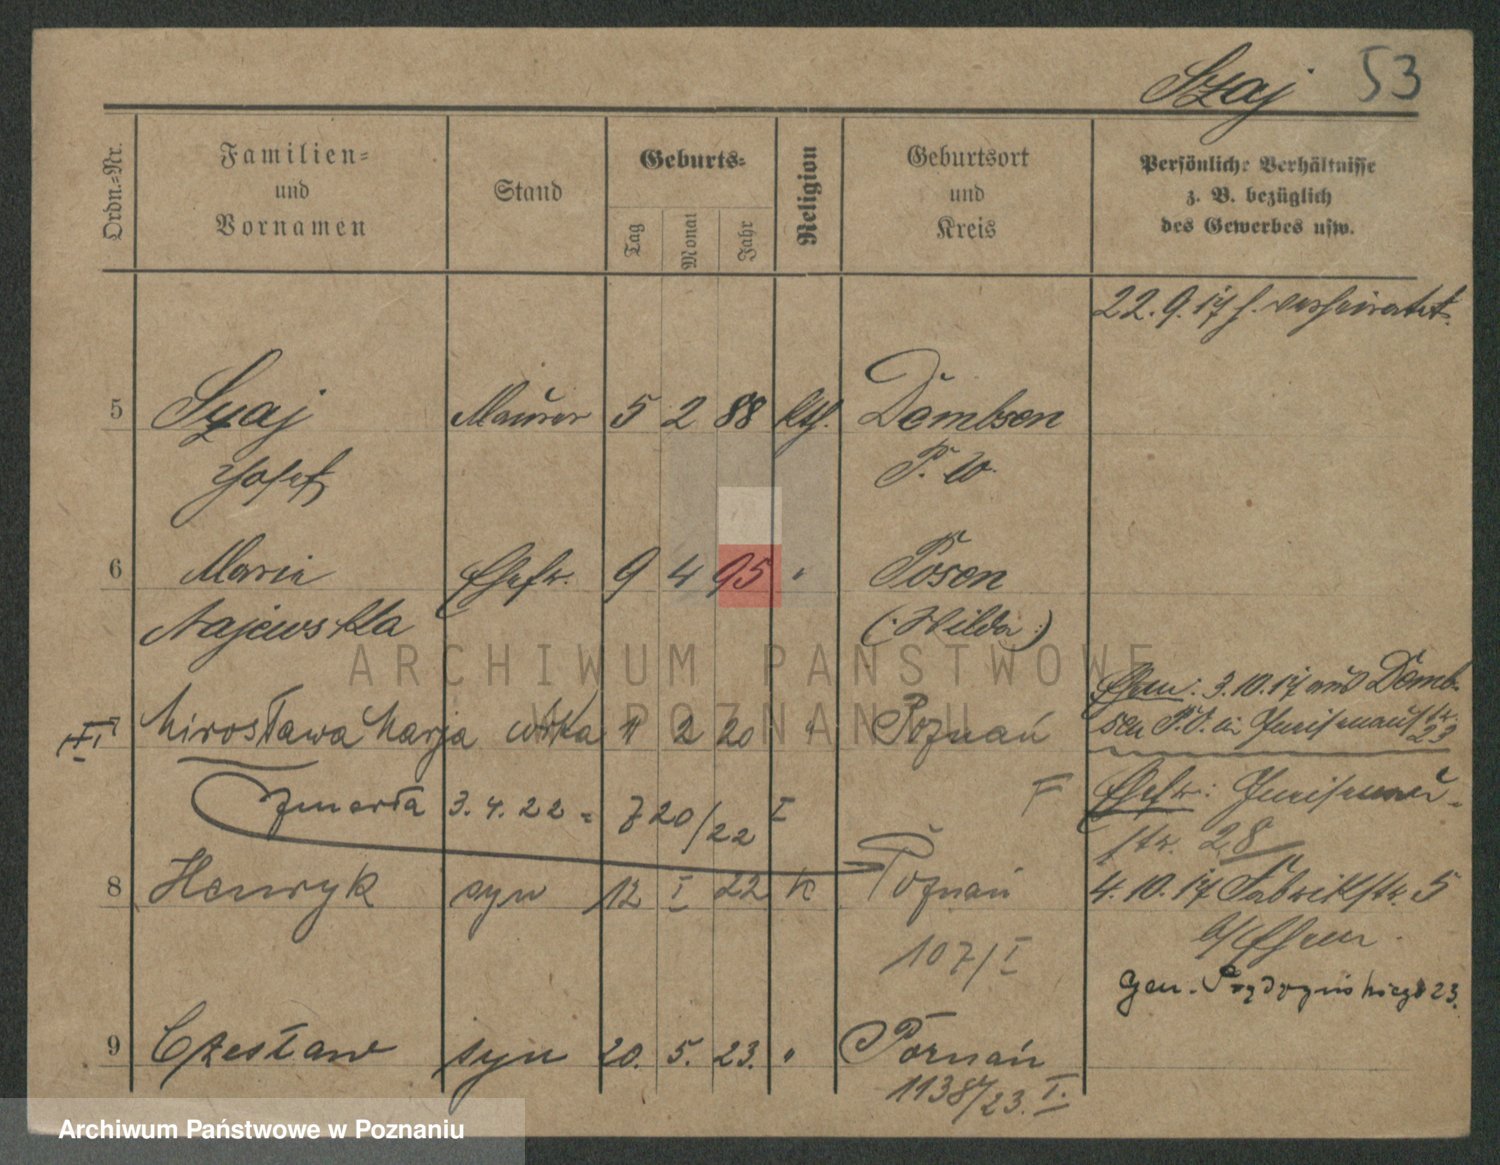 Szaj 53
Ordn.-Nr.
Familien=
und
Vornamen
Stand
Geburts=
Tag
Monat
Jahr
Religion
Geburtsort
und
Kreis
Persönliche Verhältnisse
z. B. bezüglich
des Gewerbes usw.
22.9.17 verheiratet.
5 Szaj Maurer 5 2 88 kth. Dembsen
Josef P. W.
6 Maria Ehefr. 9 4 95 " Posen
Najewska (Wilda)
Ehem: 3.10.17 aus Demb-
Mirosława Marja córka 11 2 20 " Poznań
sen P.O. in Gneisenaustr.
23
zmarła 3.4.22 = 720/22 I
F
Ehefr: Gneisenau-
str. 28
8 Henryk syn 12 I 22 k Poznań
4.10.17 Fabrikstr. 5
107/I
b/Ehem
Gen. Prądzyńskiego 23.
9 Czesław syn 20. 5. 23. " Poznań
1138/23. I.
ARCHIWUM PAŃSTWOWE
W POZNANIU
Archiwum Państwowe w Poznaniu